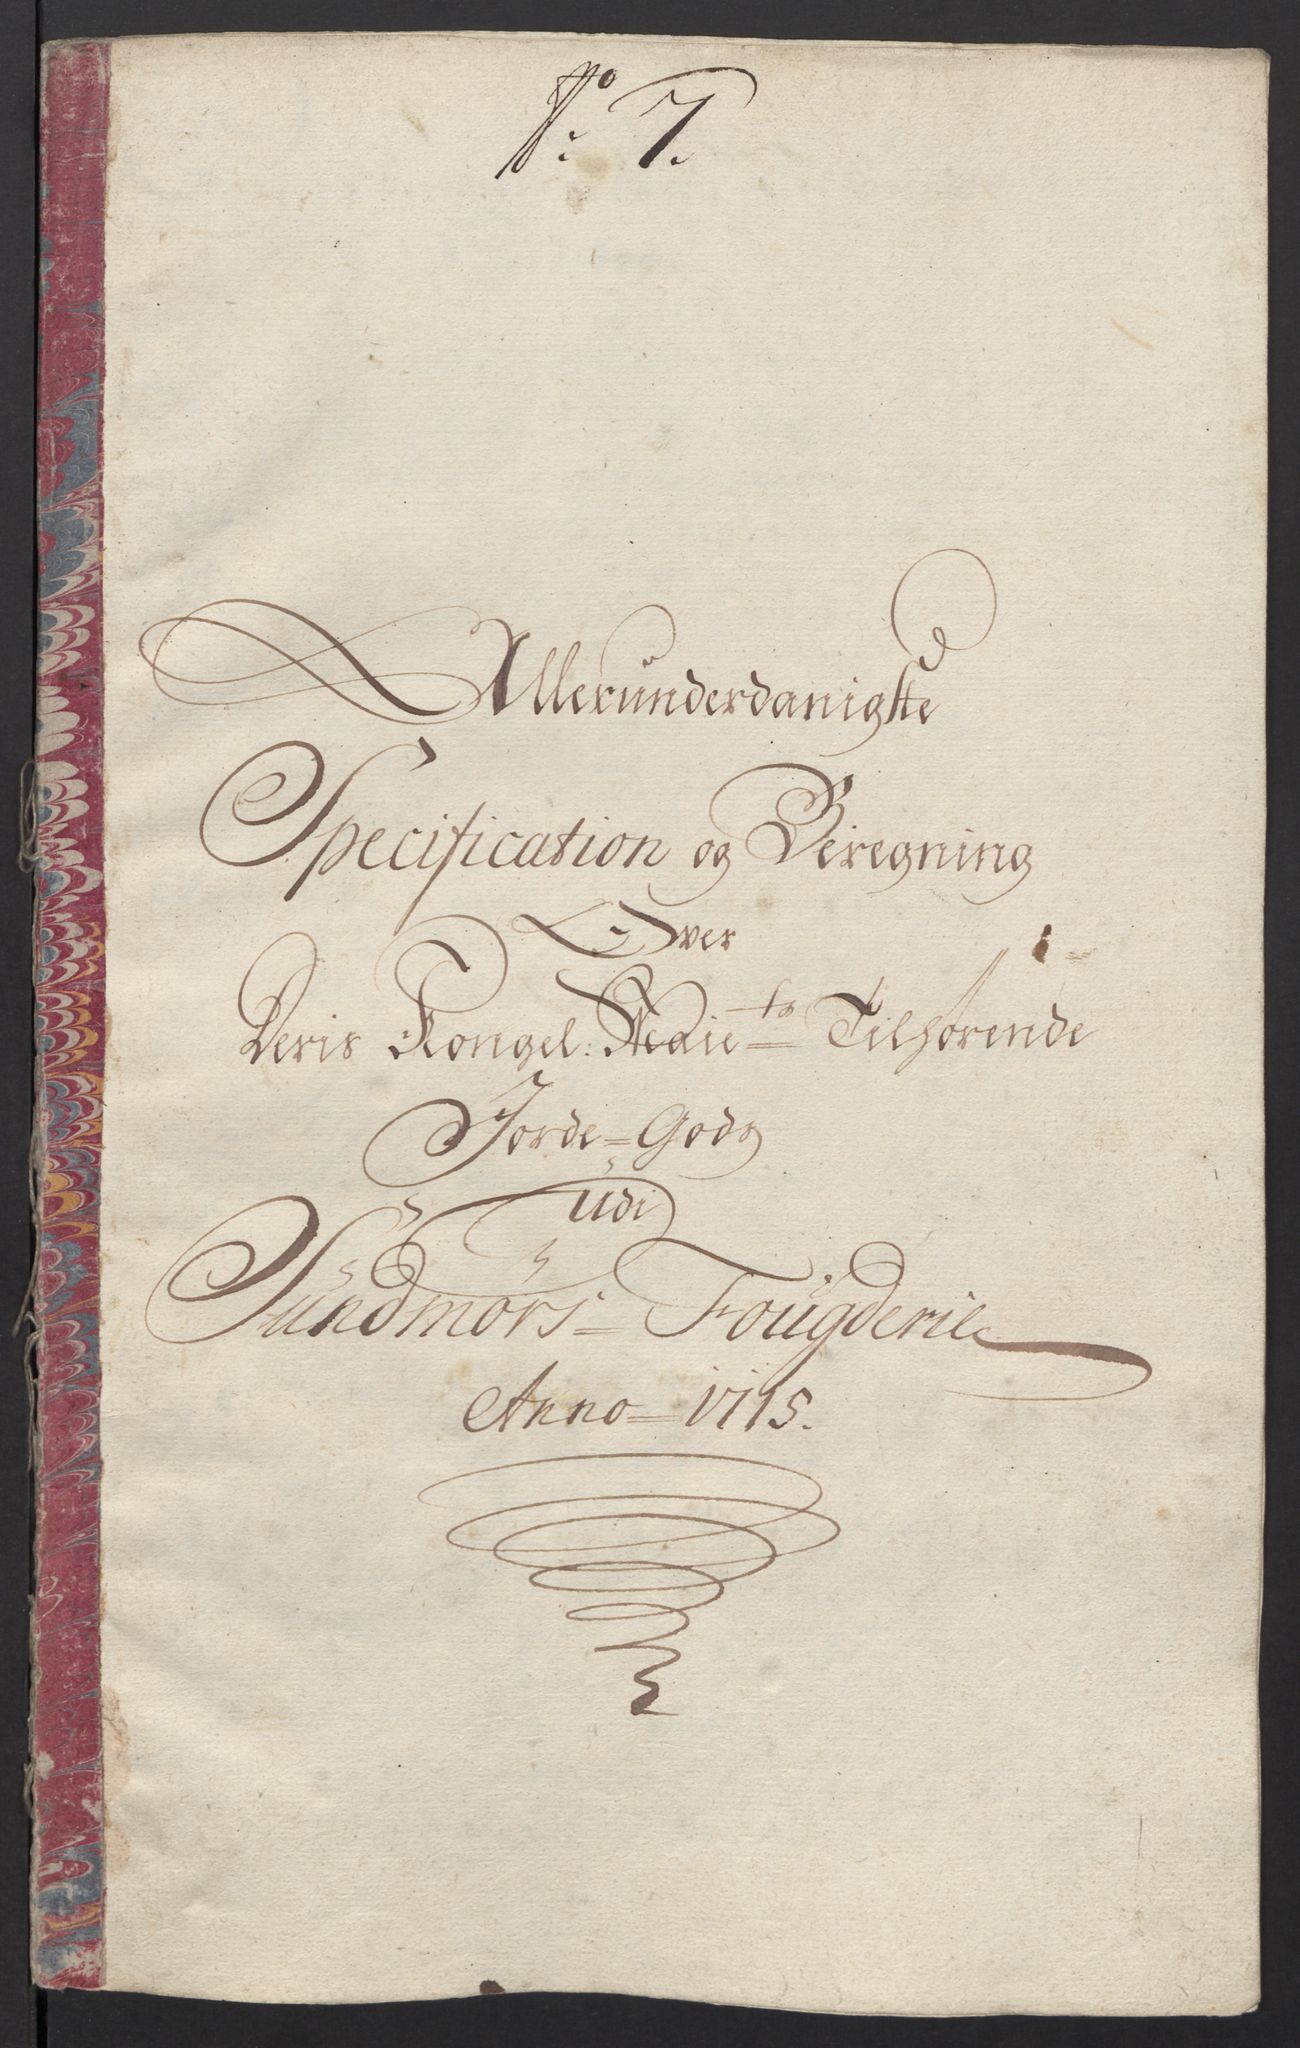 No: 7.
Allerunderdanigste
Specification og Beregning
Over
Deris Kongel: Maiets Tilhørende
Jorde=Gods
udi
Sundmørs= Fougderie
Anno= 1715.